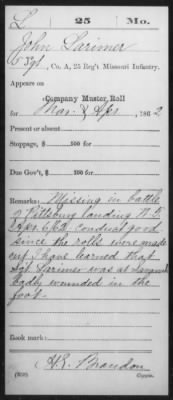 L 25 Mo.
John Larimer
5 Sgt, Co. A, 25 Reg't Missouri Infantry.
Appears on
Company Muster Roll
for Mar & Apr, 1862
Present or absent
Stoppage, $ 100 for
Due Gov't, $ 100 for
Remarks: Missing in battle
of Pittsburg landing
Apr. 6/62 conduct good
since the rolls were made
out I have learned that
Sgt Larimer was at
badly wounded in the
foot.
Book mark:
Brandon
(858) Copyist.